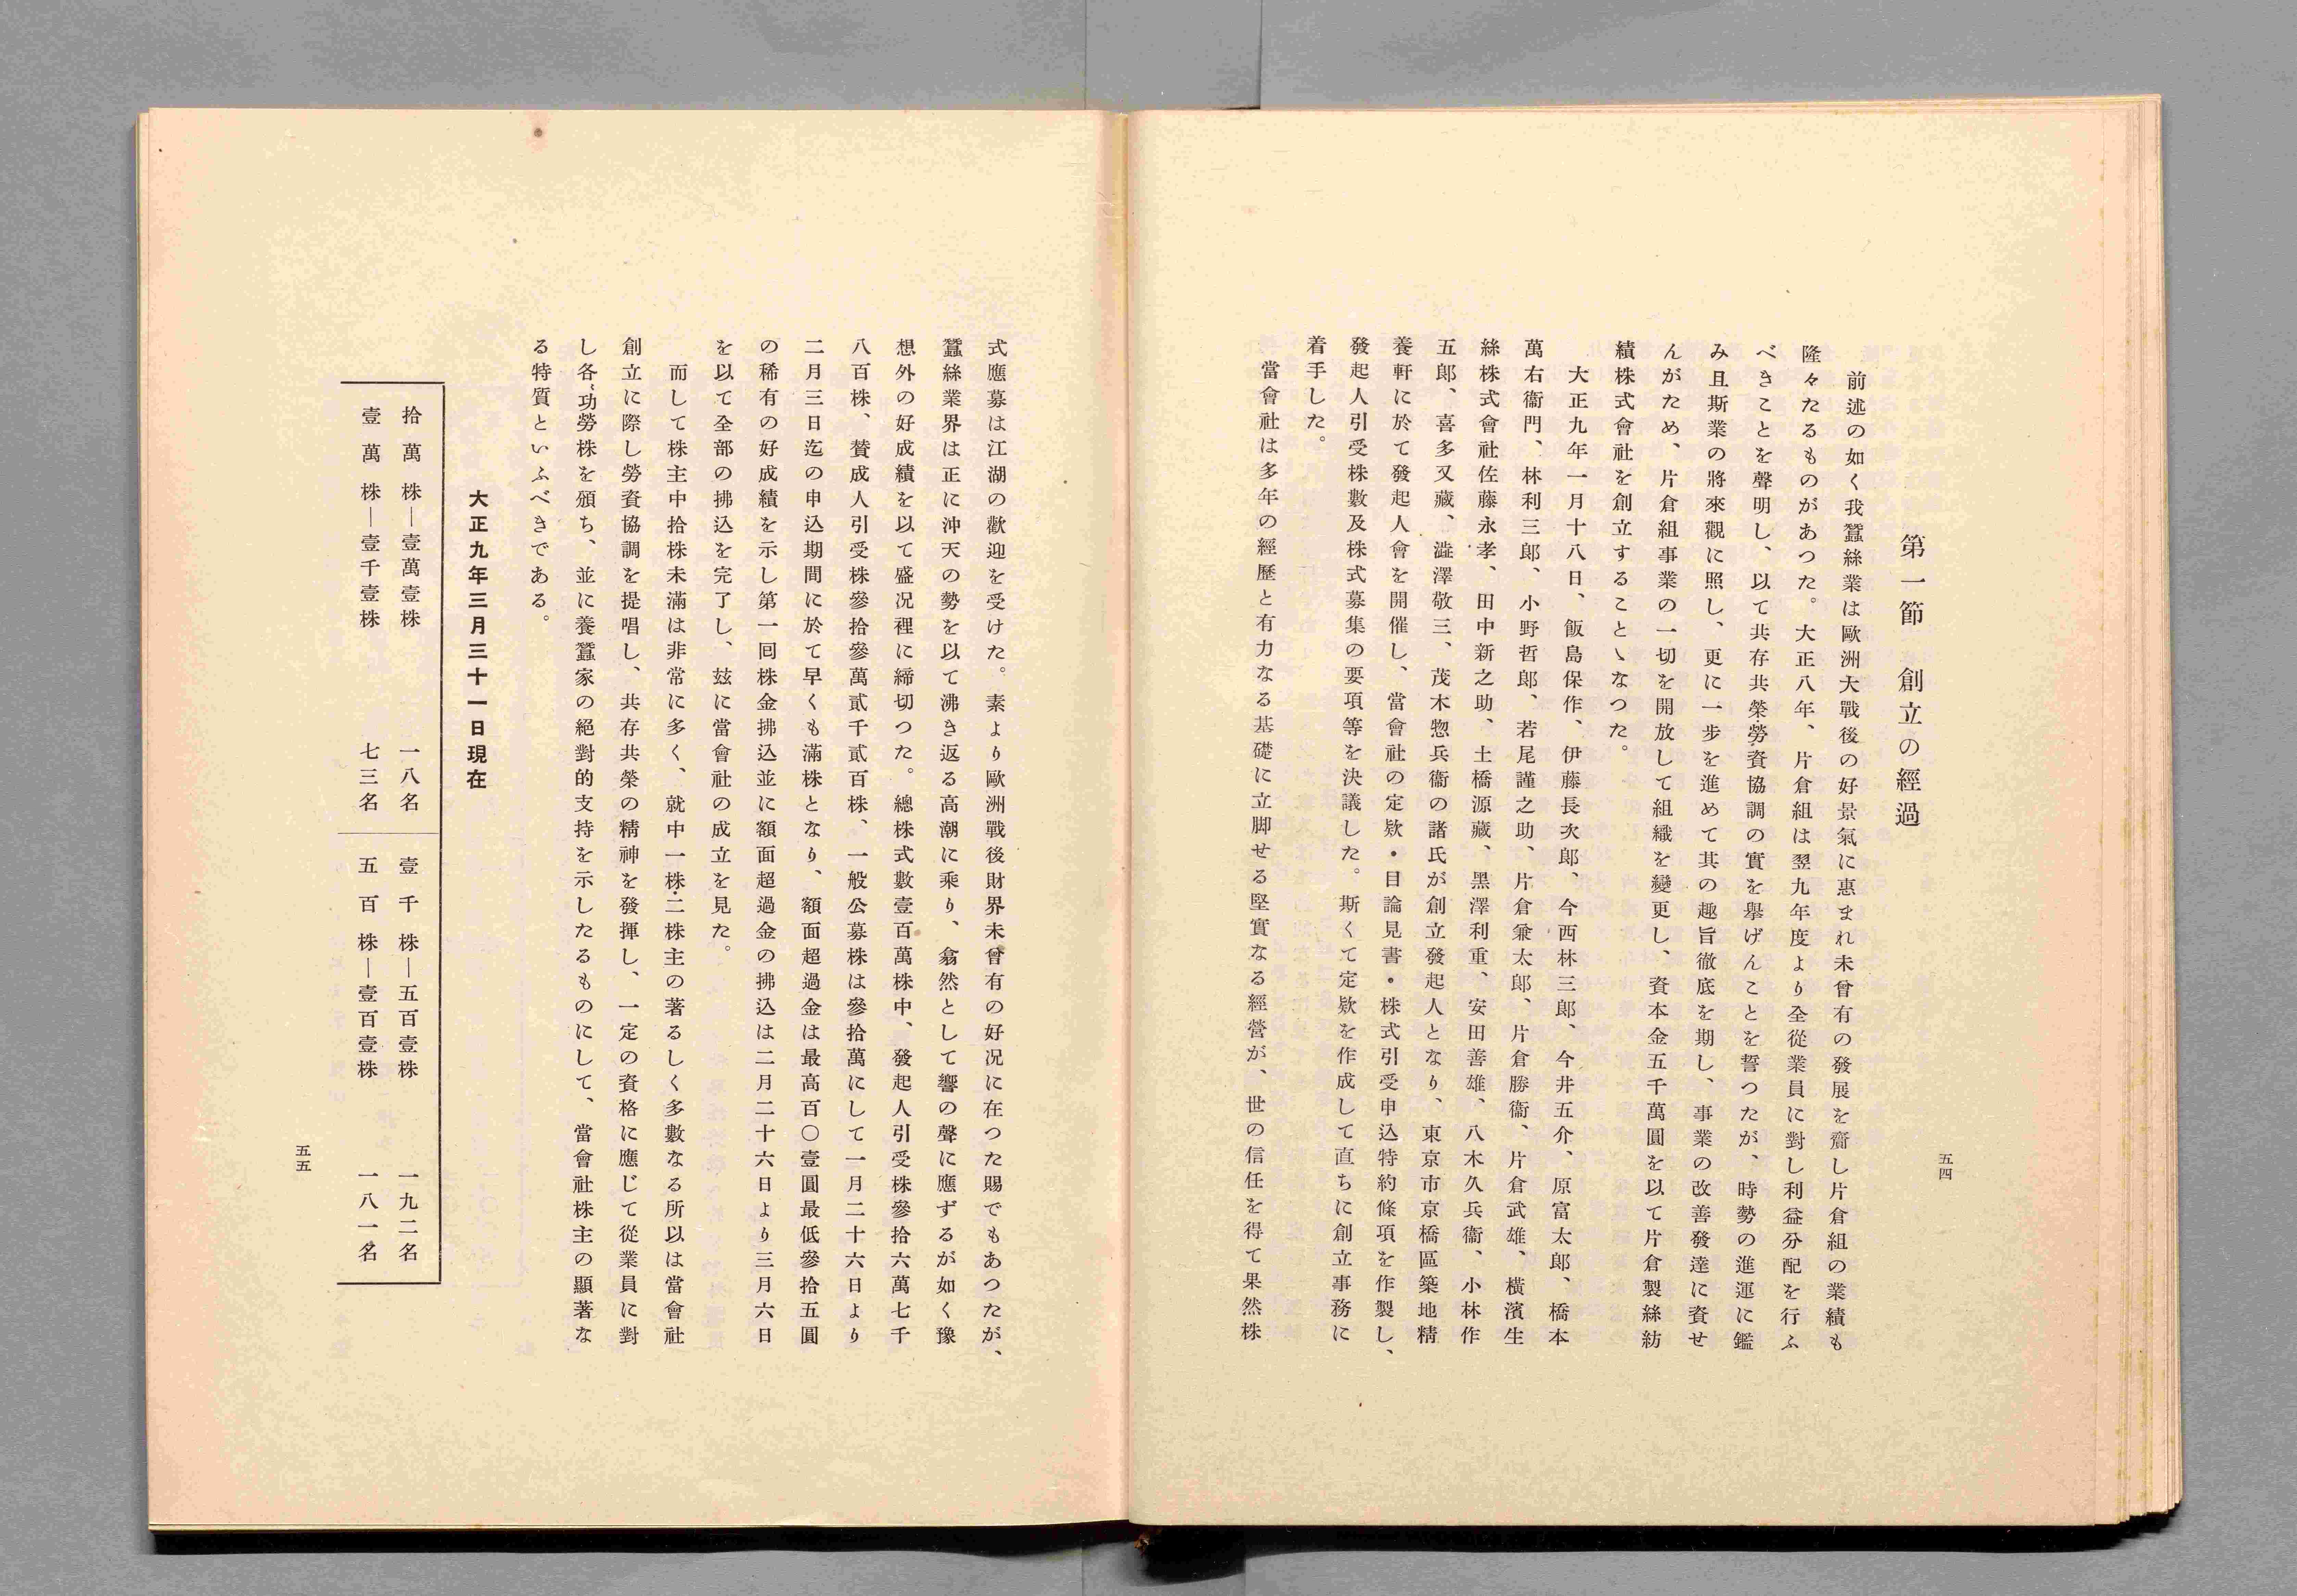 五四
第一節　創立の經過
前述の如く我蠶絲業は歐洲大戰後の好景氣に惠まれ未曾有の發展を齎し片倉組の業績も
隆々たるものがあつた。大正八年、片倉組は翌九年度より全從業員に對し利益分配を行ふ
べきことを聲明し、以て共存共榮・勞資協調の實を擧げんことを誓つたが、時勢の進運に鑑
み且斯業の將來觀に照し、更に一步を進めて其の趣旨徹底を期し、事業の改善發達に資せ
んがため、片倉組事業の一切を開放して組織を變更し、資本金五千萬圓を以て片倉製絲紡
績株式會社を創立することゝなつた。
大正九年一月十八日、飯島保作、伊藤長次郎、今西林三郎、今井五介、原富太郎、橋本
萬右衞門、林利三郎、小野哲郎、若尾謹之助、片倉兼太郎、片倉勝衞、片倉武雄、橫濱生
絲株式會社佐藤永孝、田中新之助、土橋源藏、黑澤利重、安田善雄、八木久兵衞、小林作
五郎、喜多又藏、澁澤敬三、茂木惣兵衞の諸氏が創立發起人となり、東京市京橋區築地精
養軒に於て發起人會を開催し、當會社の定欵・目論見書・株式引受申込特約條項を作製し、
發起人引受株數及株式募集の要項等を決議した。斯くて定欵を作成して直ちに創立事務に
着手した。
當會社は多年の經歷と有力なる基礎に立脚せる堅實なる經營が、世の信任を得て果然株
式應募は江湖の歡迎を受けた。素より歐洲戰後財界未曾有の好况に在つた賜でもあつたが、
蠶絲業界は正に沖天の勢を以て沸き返る高潮に乘り、翕然として響の聲に應ずるが如く豫
想外の好成績を以て盛况裡に締切つた。總株式數壹百萬株中、發起人引受株參拾六萬七千
八百株、贊成人引受株參拾參萬貳千貳百株、一般公募株は參拾萬にして一月二十六日より
二月三日迄の申込期間に於て早くも滿株となり、額面超過金は最高百〇壹圓最低參拾五圓
の稀有の好成績を示し第一回株金拂込並に額面超過金の拂込は二月二十六日より三月六日
を以て全部の拂込を完了し、玆に當會社の成立を見た。
而して株主中拾株未滿は非常に多く、就中一株・二株主の著るしく多數なる所以は當會社
創立に際し勞資協調を提唱し、共存共榮の精神を發揮し、一定の資格に應じて從業員に對
し各〻功勞株を頒ち、並に養蠶家の絕對的支持を示したるものにして、當會社株主の顯著な
る特質といふべきである。
大正九年三月三十一日現在
拾萬株―壹萬壹株　一八名　壹千株―五百壹株　一九二名
壹萬株―壹千壹株　七三名　五百株―壹百壹株　一八一名
五五